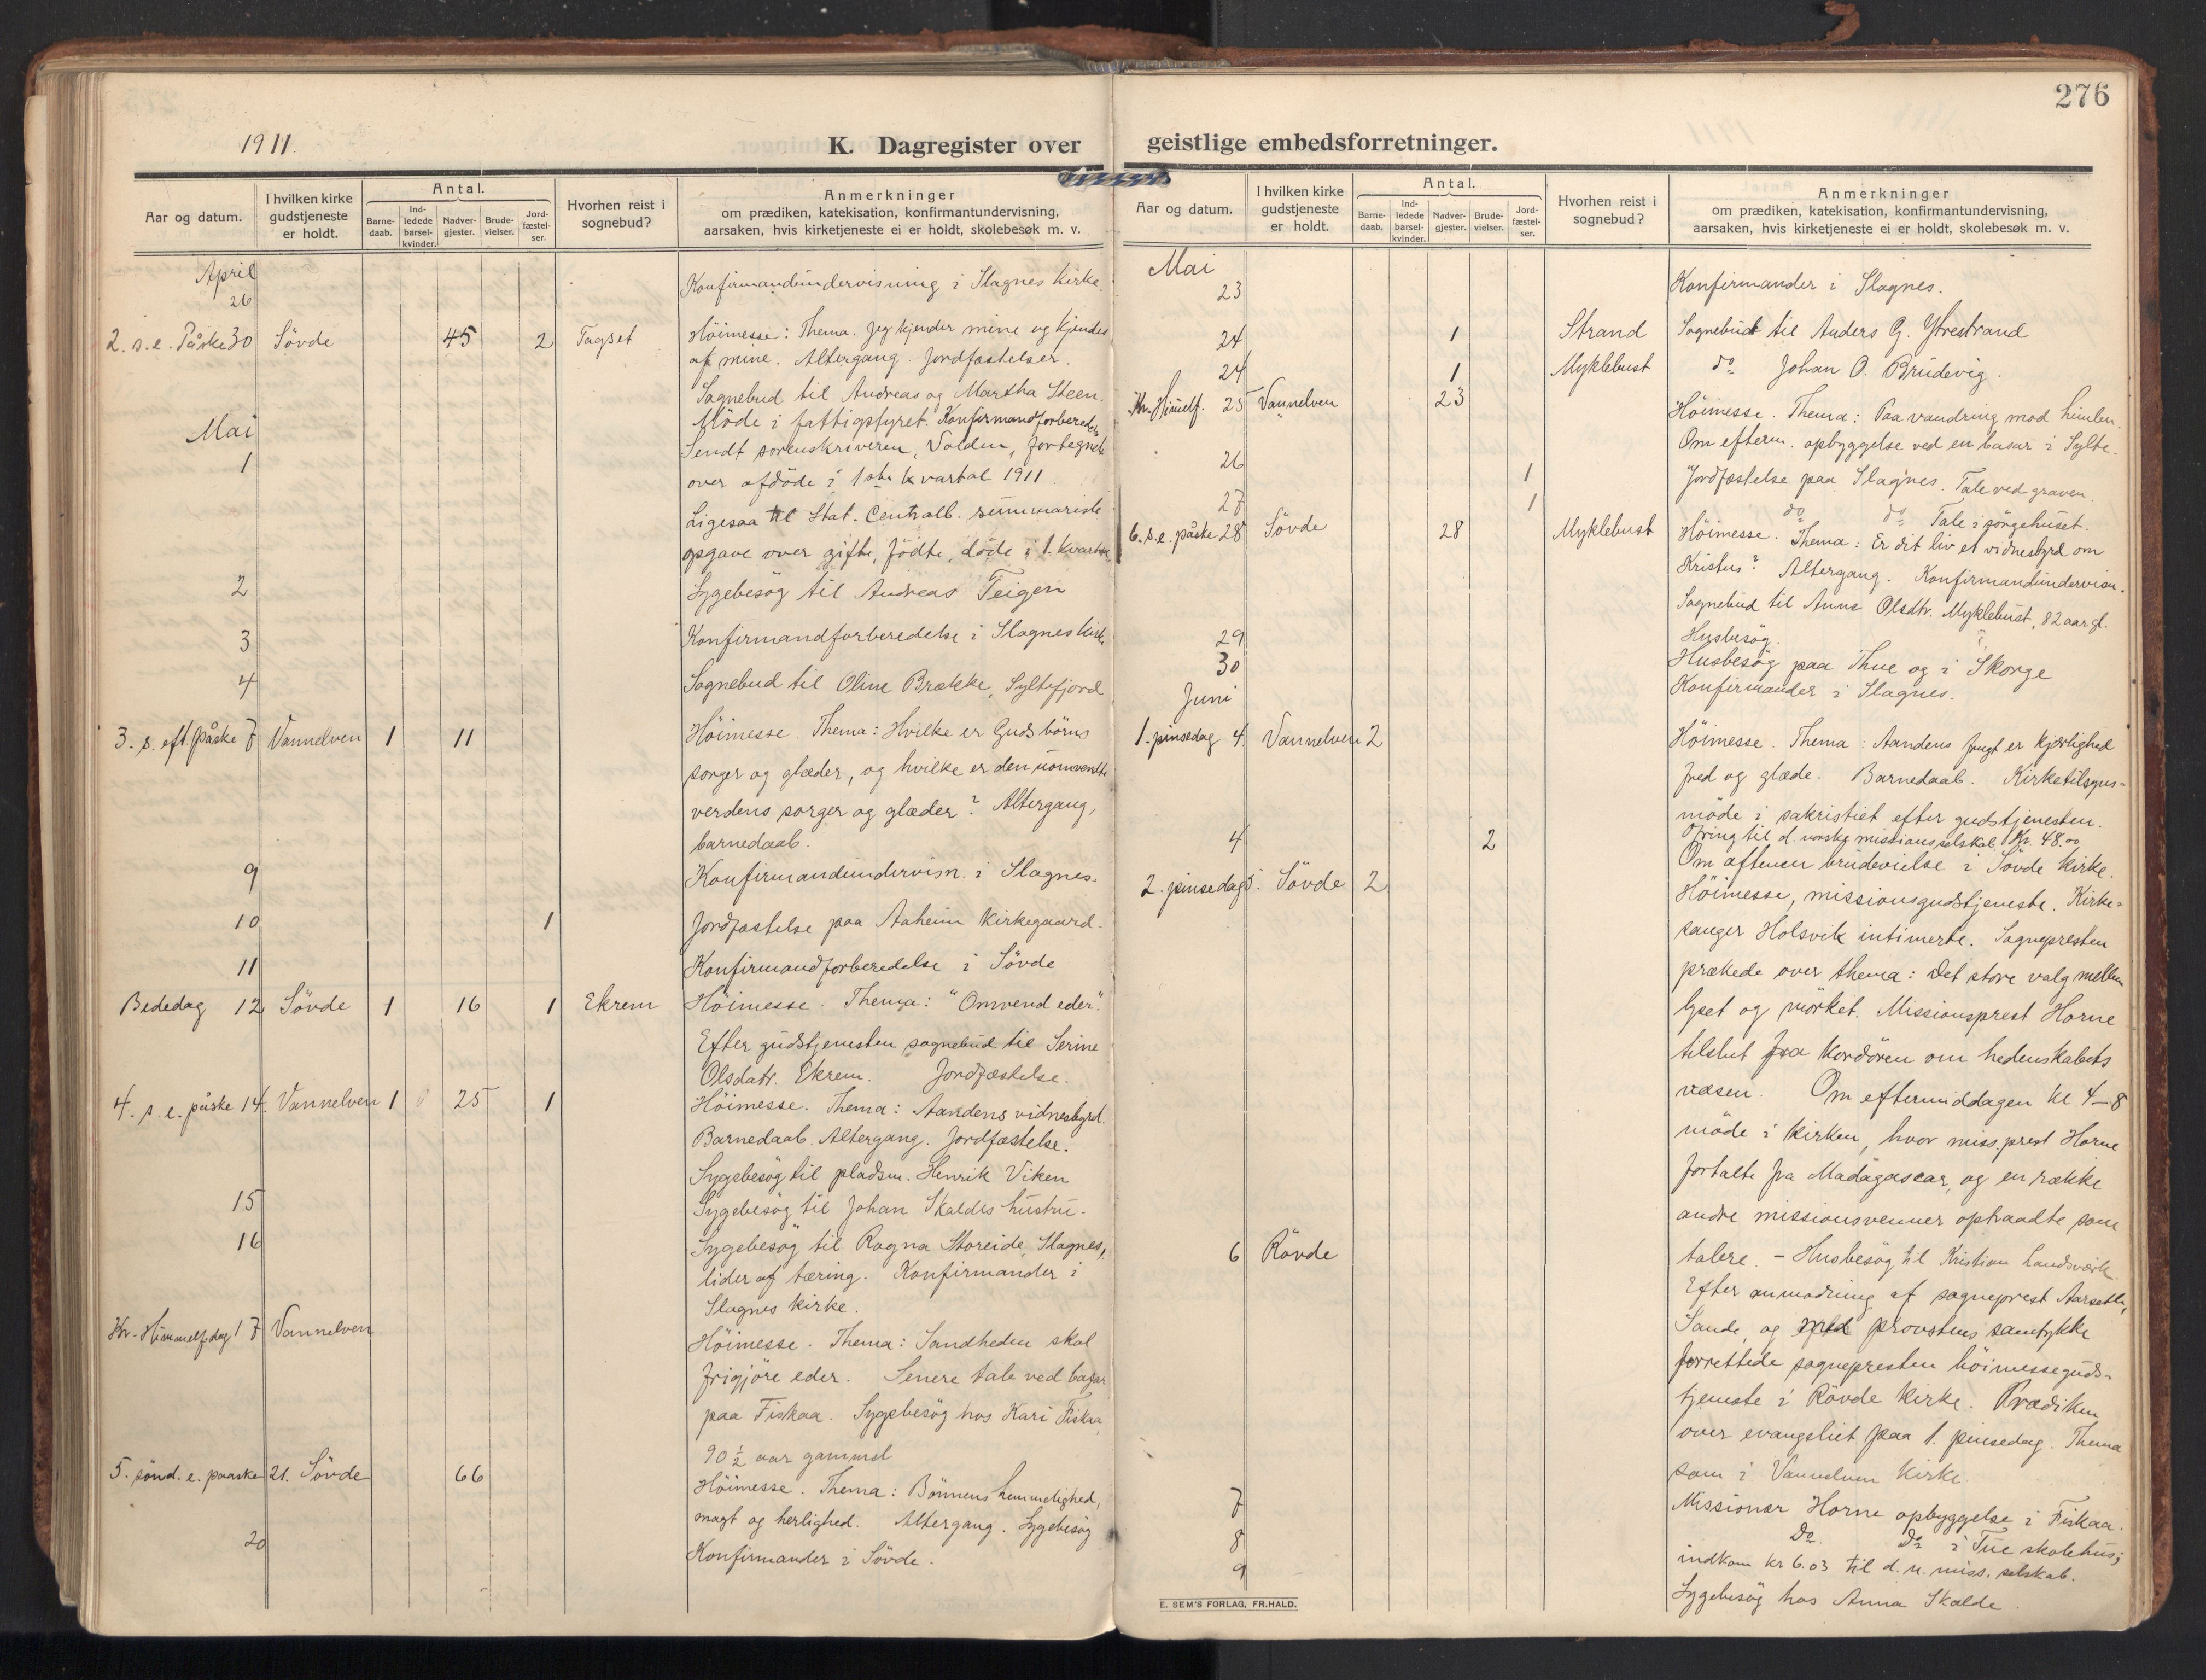 276
1911.
K. Dagregister over
Aar og datum.
I hvilken kirke gudstjeneste er holdt.
Antal.
Barne-daab.
Ind-ledede barsel-kvinder.
Nadver-gjester.
Brude-vielser.
Jord-fæstel-ser.
Hvorhen reist i sognebud?
Anmerkninger
om prædiken, katekisation, konfirmantundervisning,
aarsaken, hvis kirketjeneste ei er holdt, skolebesøk m. v.
April
26 Konfirmandundervisning i Slagnes kirke.
2. s. e. Påske 30 Sövde 45 2 Tagset Höimesse: Thema. Jeg kjender mine og kjendes
af mine. Altergang. Jordfæstelser.
Sognebud til Andreas og Martha Steen.
Möde i fattigstyret. Konfirmandforberedels
Mai
1 Sendt sorenskriveren, Volden, fortegnels
over afdöde i 1ste kvartal 1911.
Ligesaa til Stat. Centralb. summariske
opgave over gifte, födte, döde i 1. kvartal
2 Sygebesög til Andreas Feigen
3 Konfirmandforberedelse i Slagnes kirke
4 Sognebud til Oline Brække, Syltefjord
3. s. eft. påske 7 Vannelven 1 11 Höimesse. Thema: Hvilke er Guds börns
sorger og glæder, og hvilke er den uomvendte
verdens sorger og glæder? Altergang,
barnedaab.
9 Konfirmandundervisn. i Slagnes.
10 1 Jordfæstelse paa Aaheim kirkegaard.
11 Konfirmandforberedelse i Sövde
Bededag 12 Sövde 1 16 1 Ekrem Höimesse. Thema: "Omvend eder".
Efter gudstjenesten sognebud til Serine
Olsdatr. Ekrem. Jordfæstelse.
4. s. e. påske 14. Vannelven 1 25 1 Höimesse. Thema: Aandens vidnesbyrd.
Barnedaab. Altergang. Jordfæstelse.
Sygebesög til pladsm. Henrik Viken
15 Sygebesög til Johan Skaldes hustru.
16 Sygebesög til Ragna Storeide, Slagnes,
lider af tæring. Konfirmander i
Slagnes kirke.
Kr. Himmelf.dag 17 Vannelven
Höimesse. Thema: Sandheden skal
frigjöre eder. Senere tale ved basar
paa Fiskaa. Sygebesög hos Kari Fiskaa
90 ½ aar gammel
5. sönd. e. paaske 21. Sövde 66 Höimesse. Thema: Bönnens hemmelighed,
magt og herlighed. Altergang. Sygebesög
20 Konfirmander i Sövde.
geistlige embedsforretninger.
Aar og datum.
I hvilken kirke gudstjeneste er holdt.
Antal.
Barne-daab.
Ind-ledede barsel-kvinder.
Nadver-gjester.
Brude-vielser.
Jord-fæstel-ser.
Hvorhen reist i sognebud?
Anmerkninger
om prædiken, katekisation, konfirmantundervisning,
aarsaken, hvis kirketjeneste ei er holdt, skolebesøk m. v.
Mai
23 Konfirmander i Slagnes.
24 1 Strand Sognebud til Anders G. Ytrestrand
24 1 Myklebust do Johan O. Brudevig.
Kr. Himelf. 25 Vannelven 23 Höimesse. Thema: Paa vandring mod himlen.
Om efterm. opbyggelse ved en basar i Sylte.
26 1 Jordfæstelse paa Slagnes. Tale ved graven.
27 1 do do Tale i sörgehuset.
6. s. e. påske 28 Sövde 28 Myklebust Höimesse. Thema: Er dit liv et vidnesbyrd om
Kristus? Altergang. Konfirmandundervisn.
Sognebud til Anne Olsdtr. Myklebust, 82 aar gl.
29 Husbesög.
30 Husbesög paa Thue og i Skorge
Konfirmander i Slagnes.
Juni
1. pinsedag 4. Vannelven 2 Höimesse. Thema: Aandens frugt er kjærlighed
fred og glæde. Barnedaab. Kirketilsyns-
möde i sakristiet efter gudstjenesten.
Ofring til d. norske missionsselskab Kr. 48.00
4 2 Om aftenen brudevielse i Sövde kirke.
2. pinsedag 5. Sövde 2 Höimesse, missionsgudstjeneste. Kirke-
sanger Holsvik intimerte. Sognepresten
prækede over thema: Det store valg mellem
lyset og mörket. Missionsprest Horne
tilslut fra kordören om hedenskabets
væsen. Om eftermiddagen kl 4–8
möde i kirken, hvor miss.prest Horne
fortalte fra Madagascar, og en række
andre missionsvenner optraadte som
talere. – Husbesög til Kristian Landsværk.
6 Rövde Efter anmodning af sogneprest Aarseth,
Sande, og med provstens samtykke
forrettede sognepresten höimesseguds-
tjeneste i Rövde kirke. Prædiken
over evangeliet paa 1. pinsedag. Thema
som i Vannelven kirke.
7 Missionær Horne opbyggelse i Fiskaa.
8 Do Do i Tue skolehus;
indkom kr 6.03 til d. n. miss. selskab.
9 Sygebesög hos Anna Skalde.
E. SEM'S FORLAG, FR.HALD.